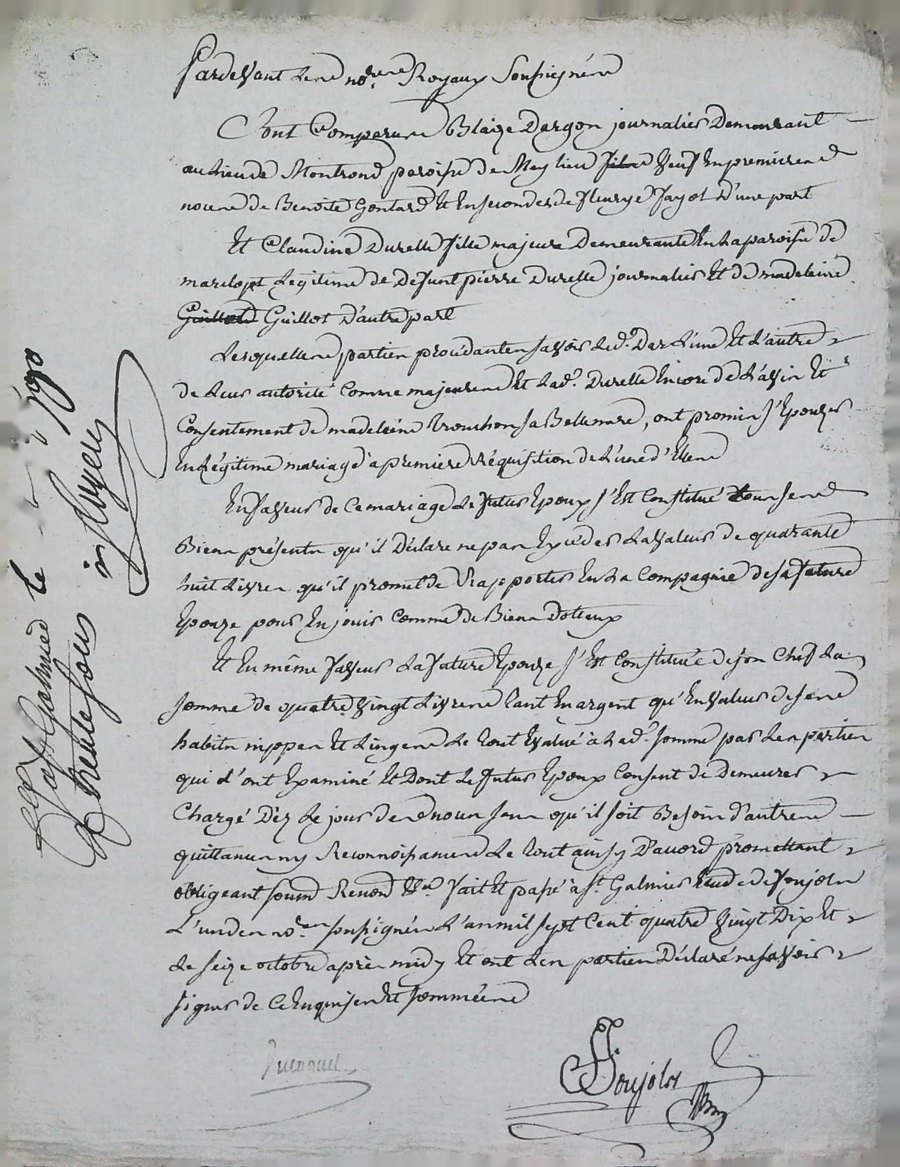 Pardevant les no.res Royaux Soussignés
Sont Comparus Blaize Dargon journalier Demeurant
au lieu de Montrond paroisse de Meylieu veuf en premieres
noces de Benoîte Gontard et en secondes de fleurye Jayot d'une part
Et Claudine Durelle fille majeure Demeurante en la paroisse de
marclopt Legitime de Defunt pierre Durelle journalier et de madeleine
Guillot Guillot D'autre part
Lesquelles parties procédantes savoir led. Dar L'une et L'autre
de leur autorité comme majeures et lad. Durelle encore de l'avis et
Consentement de madeleine sa Bellemere, ont promis s'Epouzer
en légitime mariage a premiere réquisition de l'une d'Elles
En faveur de ce mariage le futur Epoux s'est Constitué tous ses
Biens présents qu'il Déclare ne pas Excéder la valeur de quarante
huit Livres qu'il promet de rapporter en la Compagnie de sa future
Epouze pour en jouir comme de Biens dotaux
Et en même faveur la future Epouze s'est Constituée de son Chef la
somme de quatre vingt Livres tant en argent qu'en valeur de ses
habits nippes et linges le tout évalué à lad. somme par les parties
qui l'ont Examiné et Dont le futur Epoux Consent de Demeurer
Chargé Dèz le jour des noces sans qu'il soit Besoin d'autres
quittances ny Reconnoissances le tout ainsy D'accord promettant
obligeant soum Renon &a fait et passé à St. Galmier Etude de Poujols
L'un des no.res soussignés L'an mil sept Cent quatre vingt Dix et
le seize octobre après midy et ont les parties Déclaré ne savoir
signer de ce enquises et sommées
Poujols
St Galmier le
1790